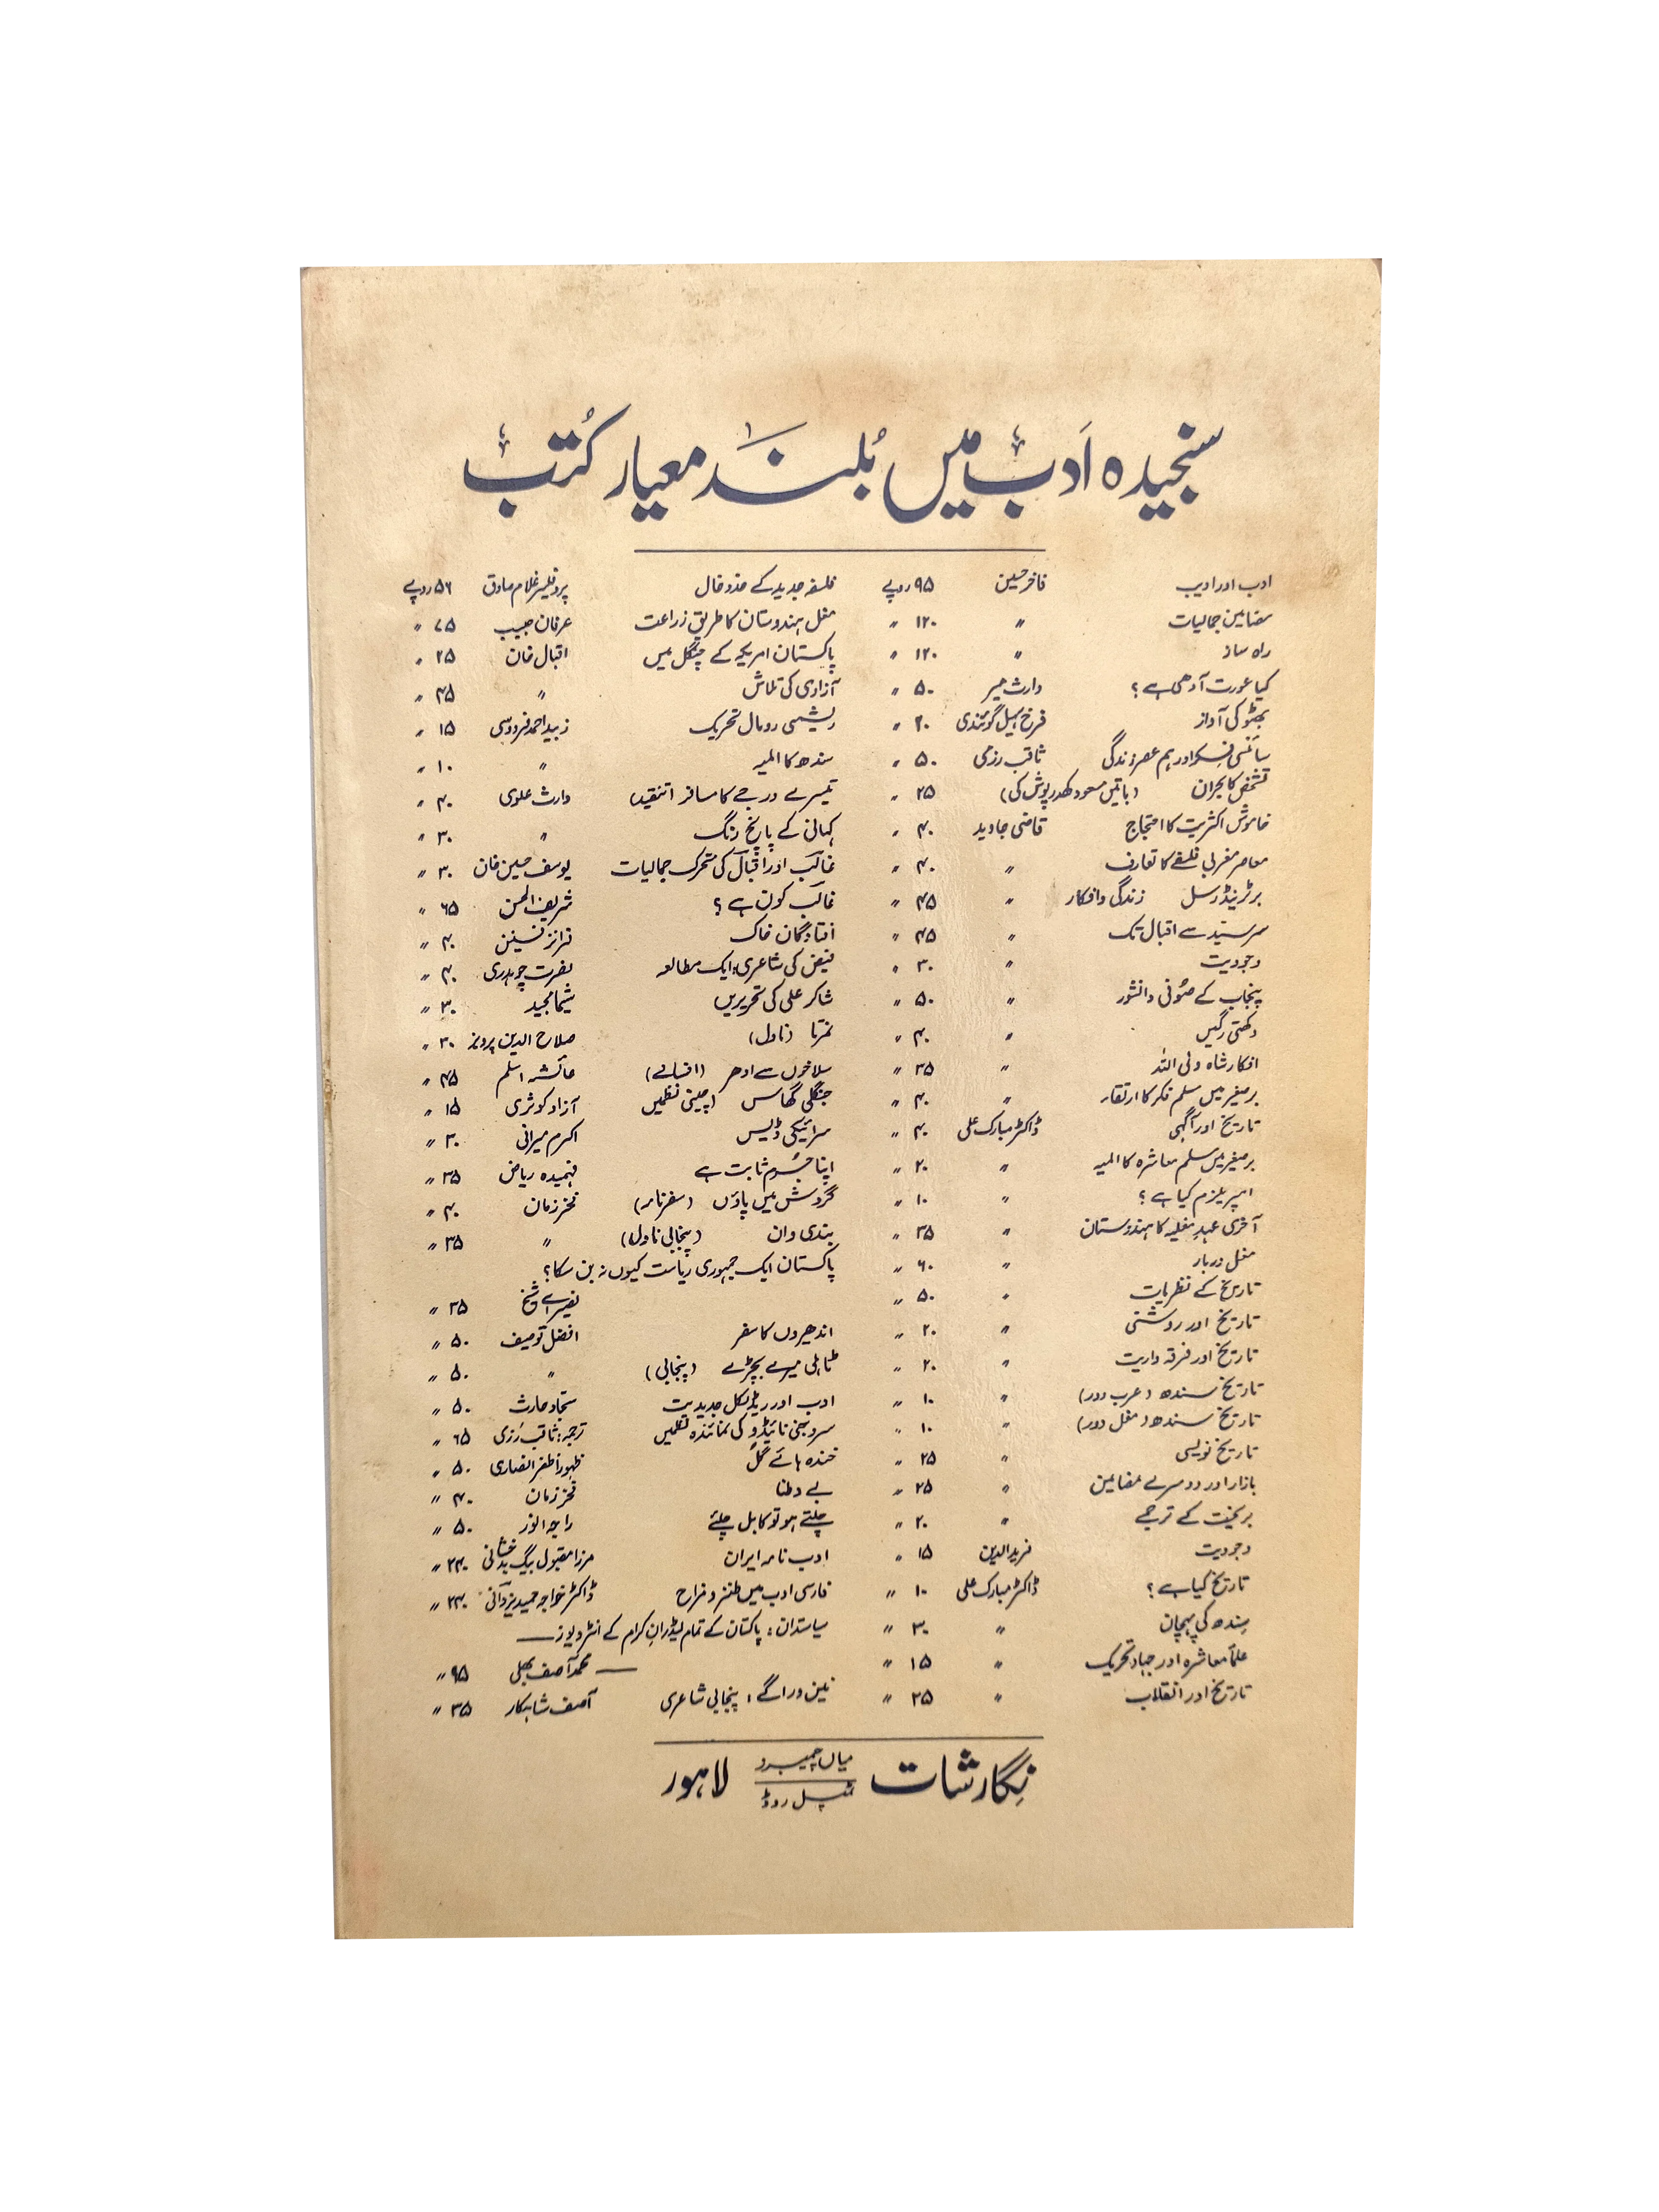 سنجیدہ اَدب میں بُلند معیار کُتب
ادب اور ادیب فاخر حسین ۹۵ روپے
مضامین جمالیات " ۱۲۰ "
راہ ساز " ۱۲۰ "
کیا عورت آدھی ہے؟ وارث میر ۵۰ "
بھٹو کی آواز فرخ سہیل گوئندی ۲۰ "
سائنسی فکر اور ہم عصر زندگی ثاقب رزمی ۵۰ "
تشخص کا بحران (باتیں مسعود کھدر پوش کی) ۲۵ "
خاموش اکثریت کا احتجاج قاضی جاوید ۴۰ "
معاصر مغربی فلسفے کا تعارف " ۴۰ "
برٹرینڈ رسل زندگی و افکار " ۴۵ "
سرسید سے اقبال تک " ۴۵ "
وجودیت " ۳۰ "
پنجاب کے صُوفی دانشور " ۵۰ "
دکھتی رگیں " ۴۰ "
افکار شاہ ولی اللہ " ۳۵ "
برصغیر میں مسلم فکر کا ارتقاء " ۴۰ "
تاریخ اور آگہی ڈاکٹر مبارک علی ۴۰ "
برصغیر میں مسلم معاشرہ کا المیہ " ۲۰ "
امپریلزم کیا ہے؟ " ۱۰ "
آخری عہدِ مغلیہ کا ہندوستان " ۳۵ "
مغل دربار " ۶۰ "
تاریخ کے نظریات " ۵۰ "
تاریخ اور روشنی " ۲۰ "
تاریخ اور فرقہ واریت " ۲۰ "
تاریخ سندھ (عرب دور) " ۱۰ "
تاریخ سندھ (مغل دور) " ۱۰ "
تاریخ نویسی " ۲۵ "
بازار اور دوسرے مضامین " ۲۵ "
بریخت کے ترجمے " ۲۰ "
وجودیت فرید الدین ۱۵ "
تاریخ کیا ہے؟ ڈاکٹر مبارک علی ۱۰ "
سِندھ کی پہچان " ۳۰ "
علمأ معاشرہ اور جہاد تحریک " ۱۵ "
تاریخ اور انقلاب " ۲۵ "
فلسفہ جدید کے خدوخال پروفیسر غلام صادق ۵۶ روپے
مغل ہندوستان کا طریق زراعت عرفان حبیب ۷۵ "
پاکستان امریکہ کے چنگل میں اقبال خان ۲۵ "
آزادی کی تلاش " ۴۵ "
ریشمی رومال تحریک زبید احمد فردوسی ۱۵ "
سندھ کا المیہ " ۱۰ "
تیسرے درجے کا مسافر (تنقید) وارث علوی ۴۰ "
کہانی کے پانچ رنگ " ۳۰ "
غالب اور اقبال کی متحرک جمالیات یوسف حسین خان ۳۰ "
غالب کون ہے؟ شریف الحسن ۶۵ "
افتادگان خاک فرانز فینن ۴۰ "
فیض کی شاعری: ایک مطالعہ نصرت چوہدری ۴۰ "
شاکر علی کی تحریریں شیما مجید ۳۰ "
نمرتا (ناول) صلاح الدین پرویز ۳۰ "
سلاخوں سے ادھر (افسانے) عائشہ اسلم ۴۵ "
جنگلی گھاس (چینی نظمیں آزاد کوثری ۱۵ "
سرائیکی ڈیس اکرم میرانی ۳۰ "
اپنا جُرم ثابت ہے فہمیدہ ریاض ۳۵ "
گردش میں پاؤں (سفرنامہ) فخر زمان ۴۰ "
بندی وان (پنجابی ناول) " ۳۵ "
پاکستان ایک جمہوری ریاست کیوں نہ بن سکا؟
نصیر اے شیخ ۲۵ "
اندھیروں کا سفر افضل توصیف ۵۰ "
ٹاہلی میرے بچڑے (پنجابی) " ۵۰ "
ادب اور ریڈیکل جدیدیت سجاد حارث ۵۰ "
سروجنی نائیڈو کی نمائندہ نظمیں ترجمہ: ثاقب رزمی ۶۵ "
خندہ ہائے گُل ظہور اظفر انصاری ۵۰ "
بے وطنا فخر زمان ۴۰ "
چلتے ہو تو کابل چلئے راجہ انور ۵۰ "
ادب نامہ ایران مرزا مقبول بیگ بدخشانی ۲۴۰ "
فارسی ادب میں طنز و مزاح ڈاکٹر خواجہ حمید یزدانی ۲۴۰ "
سیاستدان: پاکستان کے تمام لیڈرانِ کرام کے انٹرویوز —
— محمد آصف بھلی ۹۵ "
نین وراگے: پنجابی شاعری آصف شاہکار ۳۵ "
نِگارشات میاں چیمبرز ٹمپل روڈ لاہور